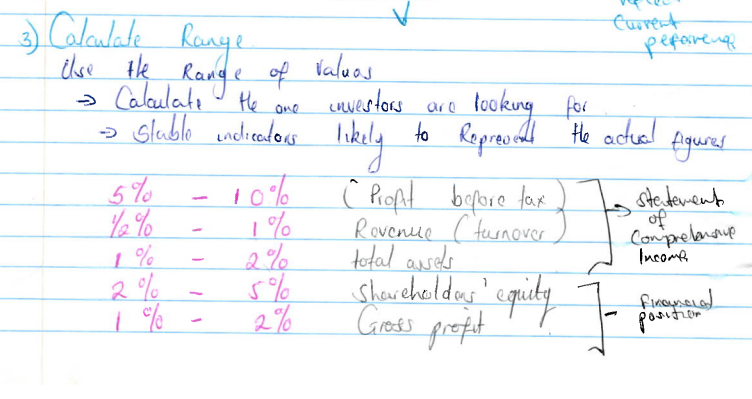 Current
3) Calculate Range
Use the Range of Values
→ Calculate the one investors are looking for
→ Stable indicators likely to Represent the actual figures
5% - 10% (Profit before tax)
½% - 1% Revenue (turnover)
1% - 2% total assets
2% - 5% Shareholders' equity
1% - 2% Gross profit
→ Statements
of
Comprehensive
Income
Financial
position